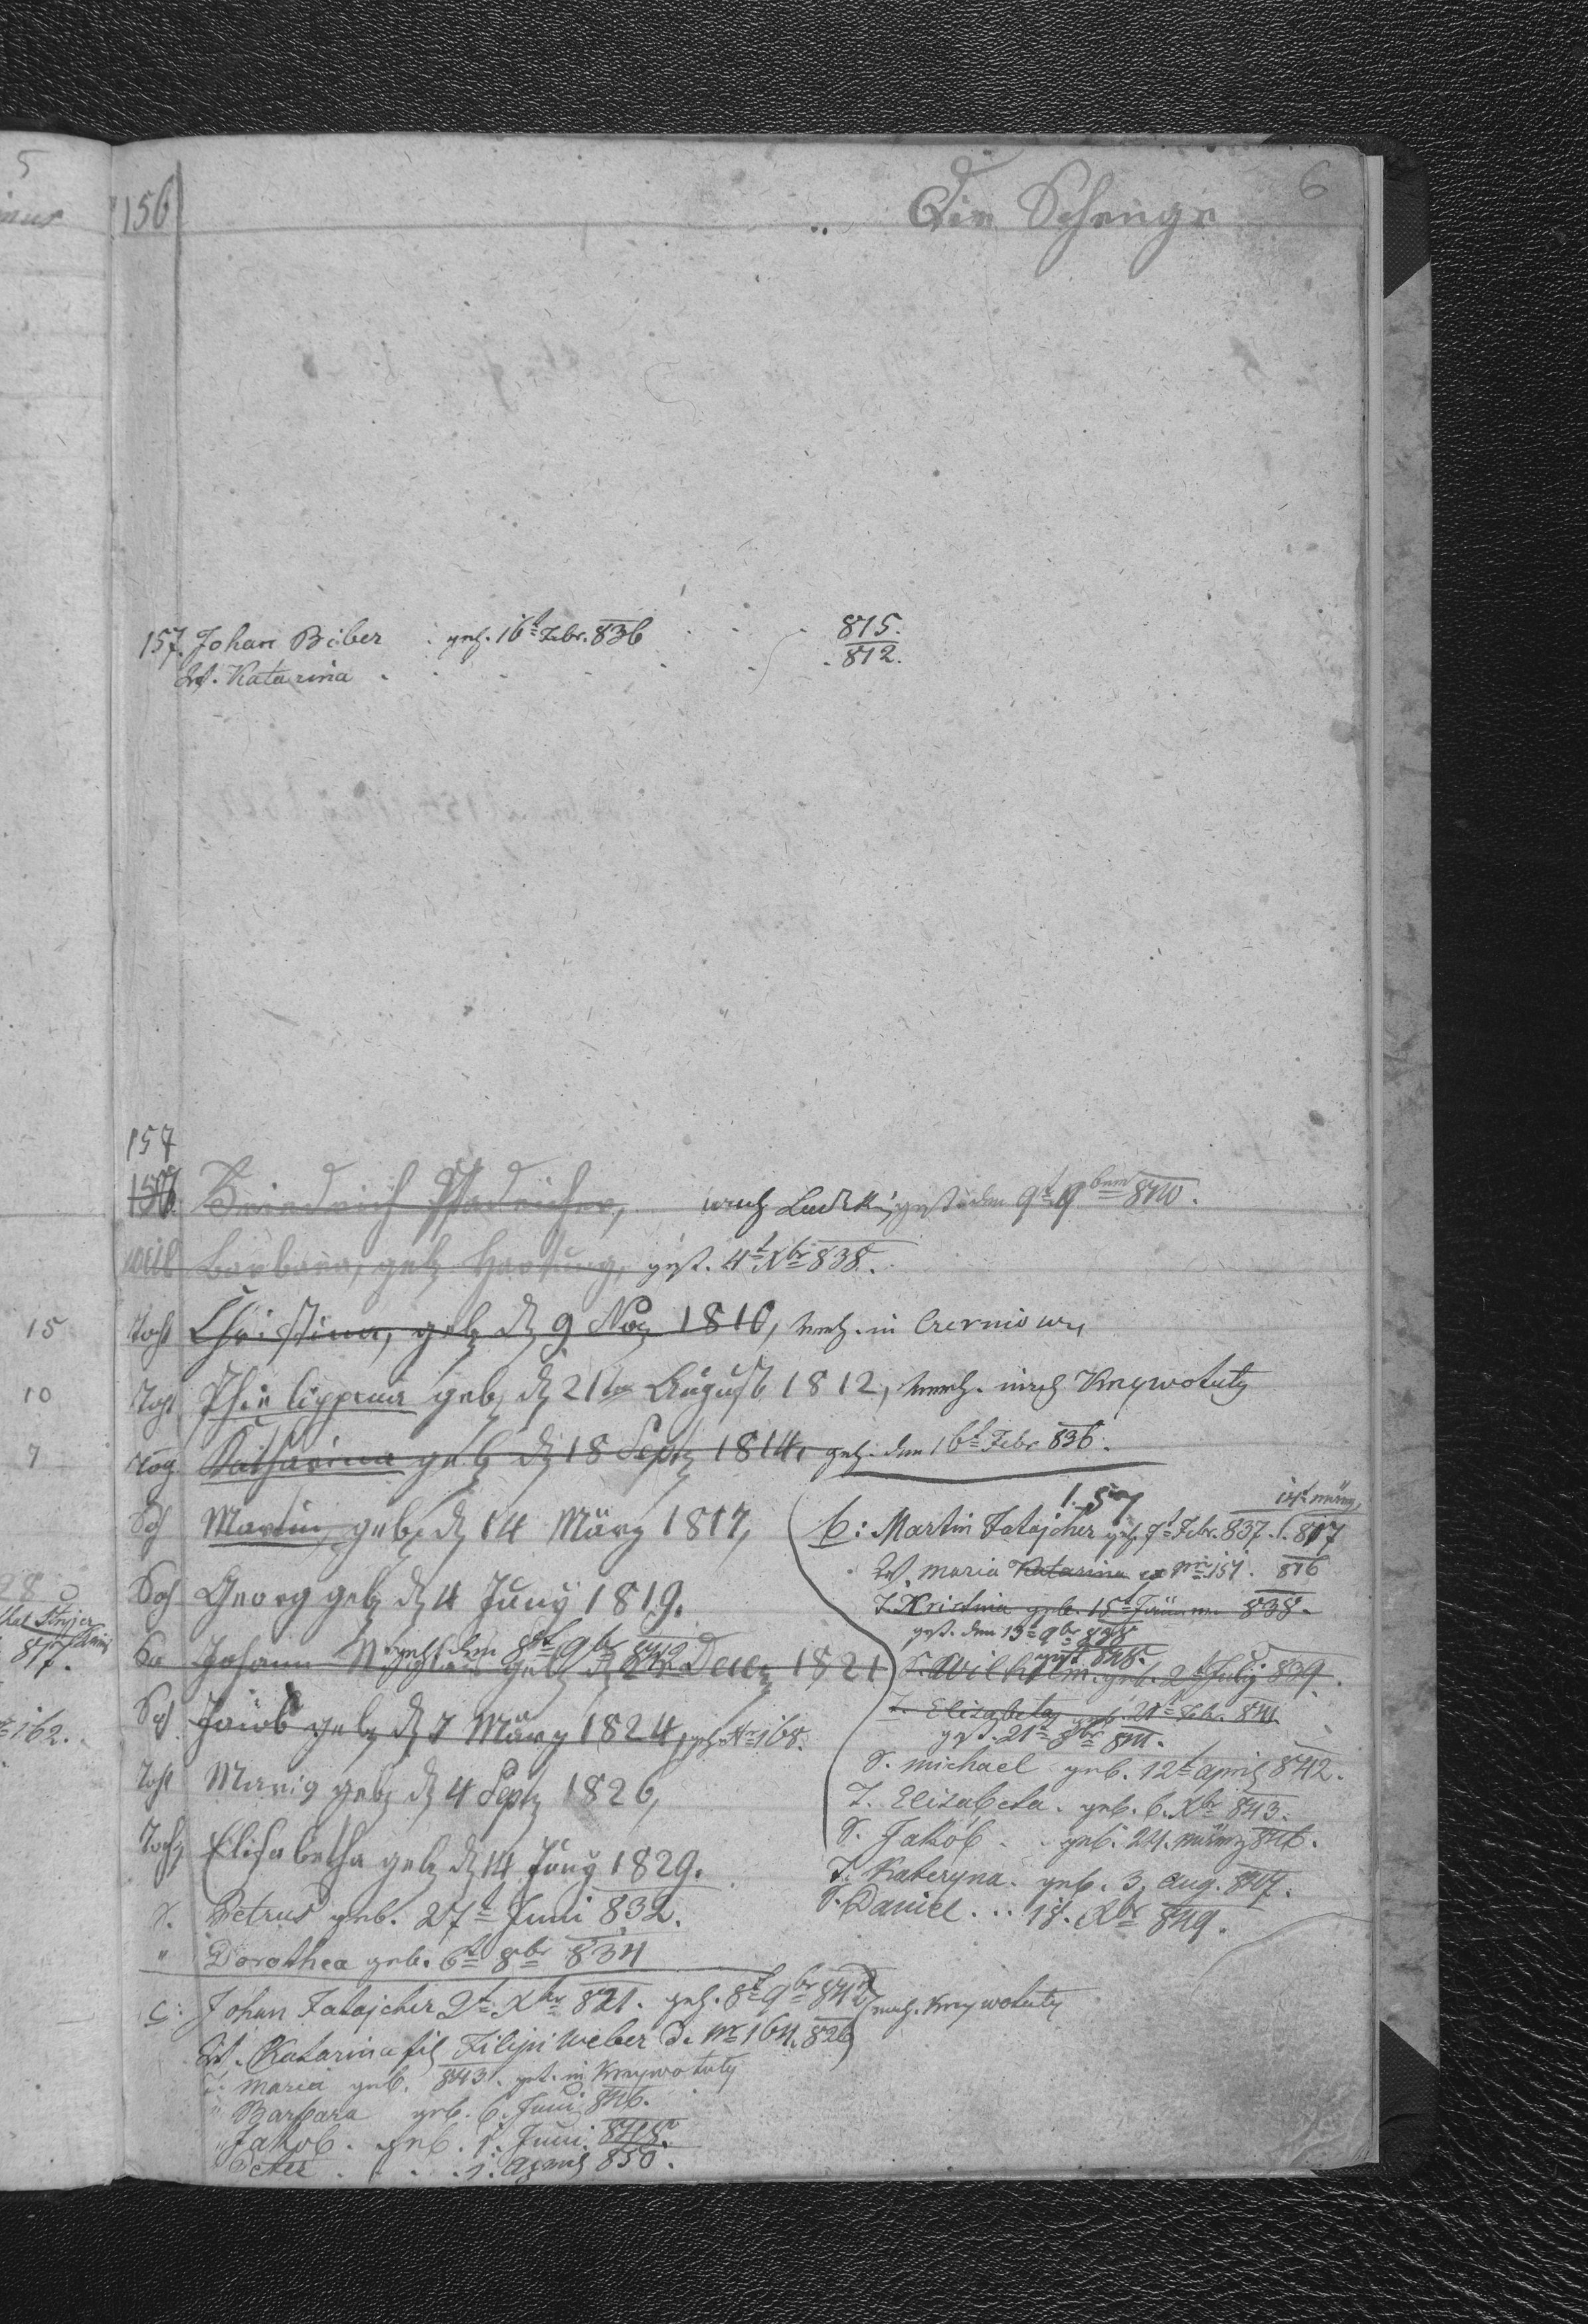 5
6
156
Die Schenge
157. Johan Biber . geh. 16t Febr. 836 . . . 815.
W. Katarina . . . . . 812.
157
156. Friedrich Pfadeicher, nach gest. den 9t 9brm 840.
weib Barbara, geb Hartung, gest. 4t Xbr 838.
15
Toch Christina, geb d 9 Nov 1810, in Czerniow
10
Toch Philippina geb, d 21ten August 1812, nach Knywotuly
7
Katharina geb d 18 Sept 1814. geh. den 16t Febr 836.
Soh Martin, geb, d 14 März 1817,
Soh Georg geb d 4 Juny 1819.
geh. den 8t 9br 842
So Johann geb d 2t Decez 1821
Soh Jacob geb d 7 März 1824, geh. Nr 168.
Toch Maria geb d 4 Sept 1826,
Toch, Elisabetha geb d 14 Juny 1829.
S. Petrus geb. 27t Juni 832.
" Dorothea geb. 6t 8br 834
157
14t März
b: Martin Fatajcher geh. 7t Febr. 837. 817
W. Maria Katarina ex Nro 151. 816
T. Kristina geb. 15t Jänner 838.
gest. den 13t 9br 838
gest 848.
S. Wilhelm. geb. 2t July 839.
T. Elizabeta geb. 21t Febr. 841
gest. 21t 8br 841.
S. Michael geb. 12t April 842.
T. Elizabeta. geb. 6. Xbr 843.
S. Jakob . . geb. 24. März 846.
T. Kateryna. geb. 3. Aug. 847.
S. Daniel . . . 18. Xbr 849.
c: Johan Fatajcher 2t Xbr 821. geh. 8t 9br 842 nach. Knywotuly
W. Katarina fil Filipi Weber d. Nr 164. 826
T. Maria geb. 843. gest. in Knywotuly
" Barbara geb. 6. Juni 846.
" Jakob. geb. 1. Juni. 848.
" Peter . . . . 1. April 850.
162.